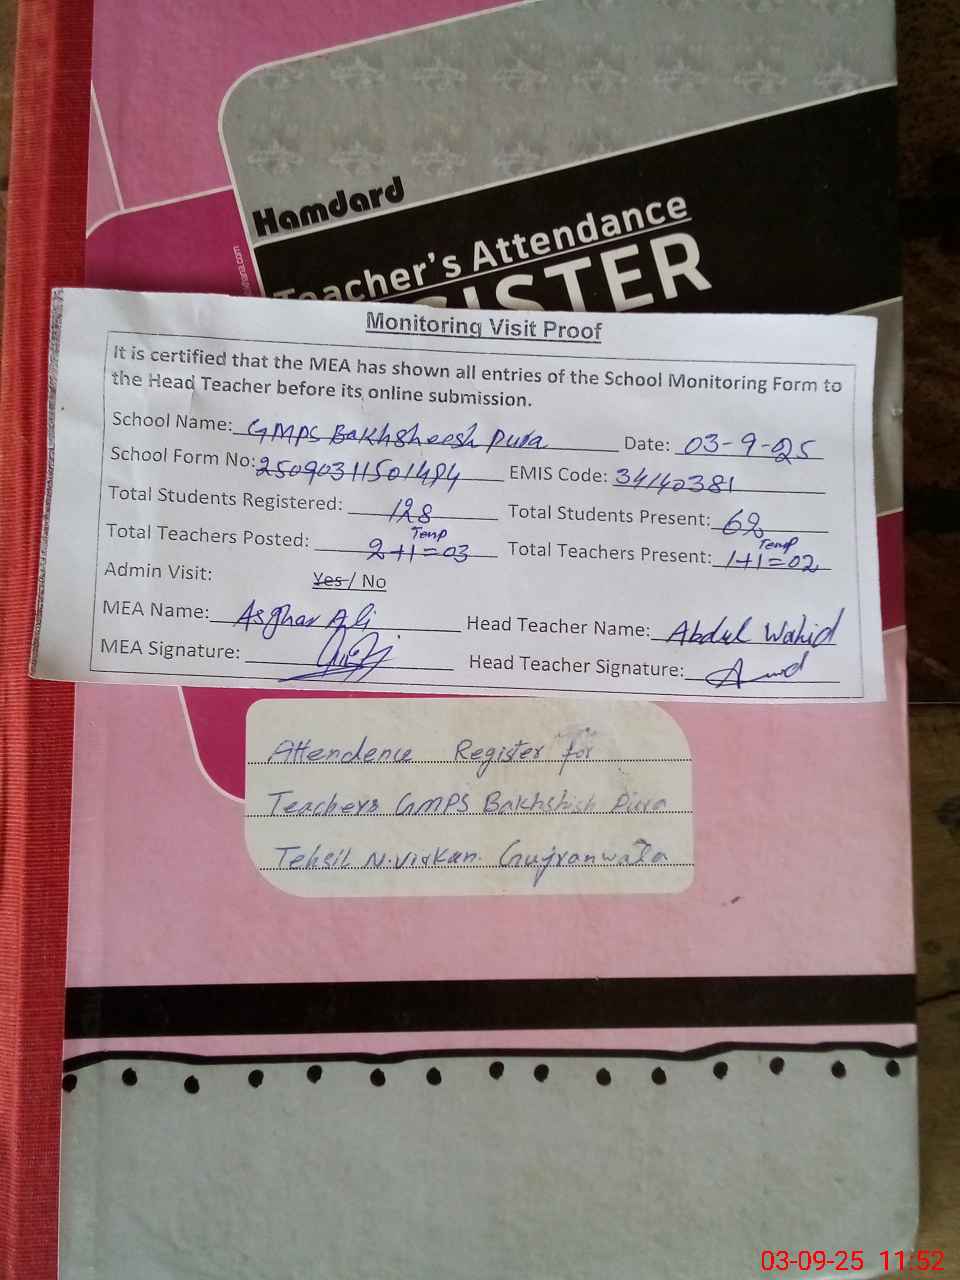 Hamdard
Teacher's Attendance
Monitoring Visit Proof
It is certified that the MEA has shown all entries of the School Monitoring Form to
the Head Teacher before its online submission.
School Name: GMPS Bakhsheesh Pura Date: 03-9-25
School Form No: 25090311501484 EMIS Code: 34140381
Total Students Registered: 128 Total Students Present: 62
Total Teachers Posted: 2+1=03 Temp Total Teachers Present: 1+1=02 Temp
Admin Visit: Yes / No
MEA Name: Asghar Ali Head Teacher Name: Abdul Wahid
MEA Signature: Head Teacher Signature:
Attendence Register for
Teachers GMPS Bakhshish Pura
Tehsil N.Virkan. Gujranwala
03-09-25 11:52